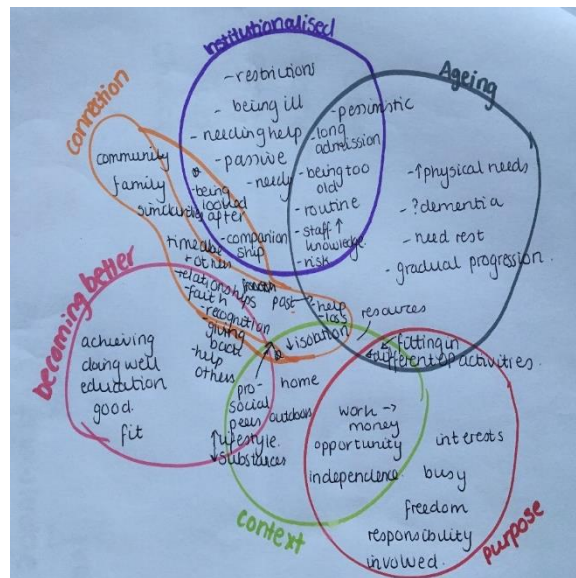 institutionalised
- restrictions
- being ill
- needing help
- passive
- needy
- being
looked
after
- companion
ship
Ageing
- pessimistic
- long
admission
- being too
old
- routine
- staff ↑
knowledge
- risk
- ↑ physical needs
- ? dementia
- need rest
- gradual progression.
connection
community
family
similarities
time able
+ others
relationships
- faith
- recognition
- giving
back
- help
others
past
- help
- loss
↓ isolation
resources
becoming better
achieving
doing well
education
good.
fit
pro-
social
peers
↑ lifestyle.
↓ substances
home
outdoors
context
fitting in
different activities.
work →
money
opportunity
independence
interests
busy
freedom
responsibility
involved.
purpose